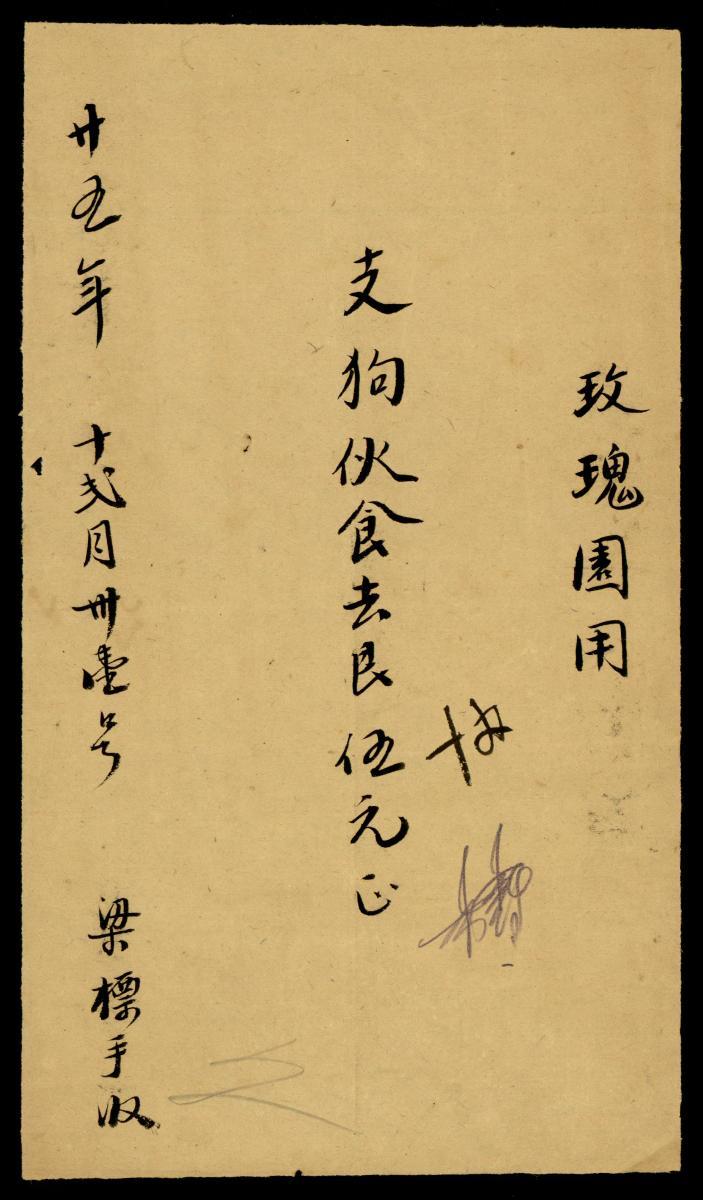 玫瑰園用
支狗伙食去艮伍元正
廿五年 十弍月卅壹号 梁標手收